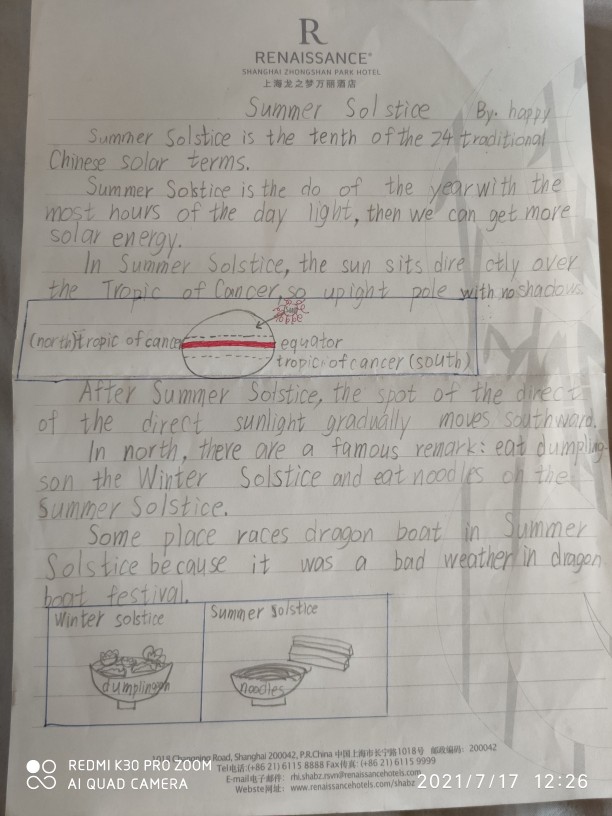 R
RENAISSANCE®
SHANGHAI ZHONGSHAN PARK HOTEL
上海龙之梦万丽酒店
Summer Solstice By. happy
Summer Solstice is the tenth of the 24 traditional
Chinese solar terms.
Summer Solstice is the do of the year with the
most hours of the day light, then we can get more
solar energy.
In Summer Solstice, the sun sits dire ctly over
the Tropic of Cancer, so upright pole with no shadows.
(north)tropic of cancer
equator
tropic of cancer (south)
After Summer Solstice, the spot of the direct
of the direct sunlight gradually moves southward.
In north, there are a famous remark: eat dumpling
son the Winter Solstice and eat noodles on the
Summer Solstice.
Some place races dragon boat in Summer
Solstice because it was a bad weather in dragon
boat festival.
Winter solstice
Summer solstice
dumpling
noodles
Road, Shanghai 200042, P.R.China 中国上海市长宁路1018号 邮政编码: 200042
Tel电话:(+86 21) 6115 8888 Fax传真: (+86 21) 6115 9999
E-mail电子邮件: rhi.shabz.rsvn@renaissancehotels.com
Webste网址: www.renaissancehotels.com/shabz
REDMI K30 PRO ZOOM
AI QUAD CAMERA
2021/7/17 12:26